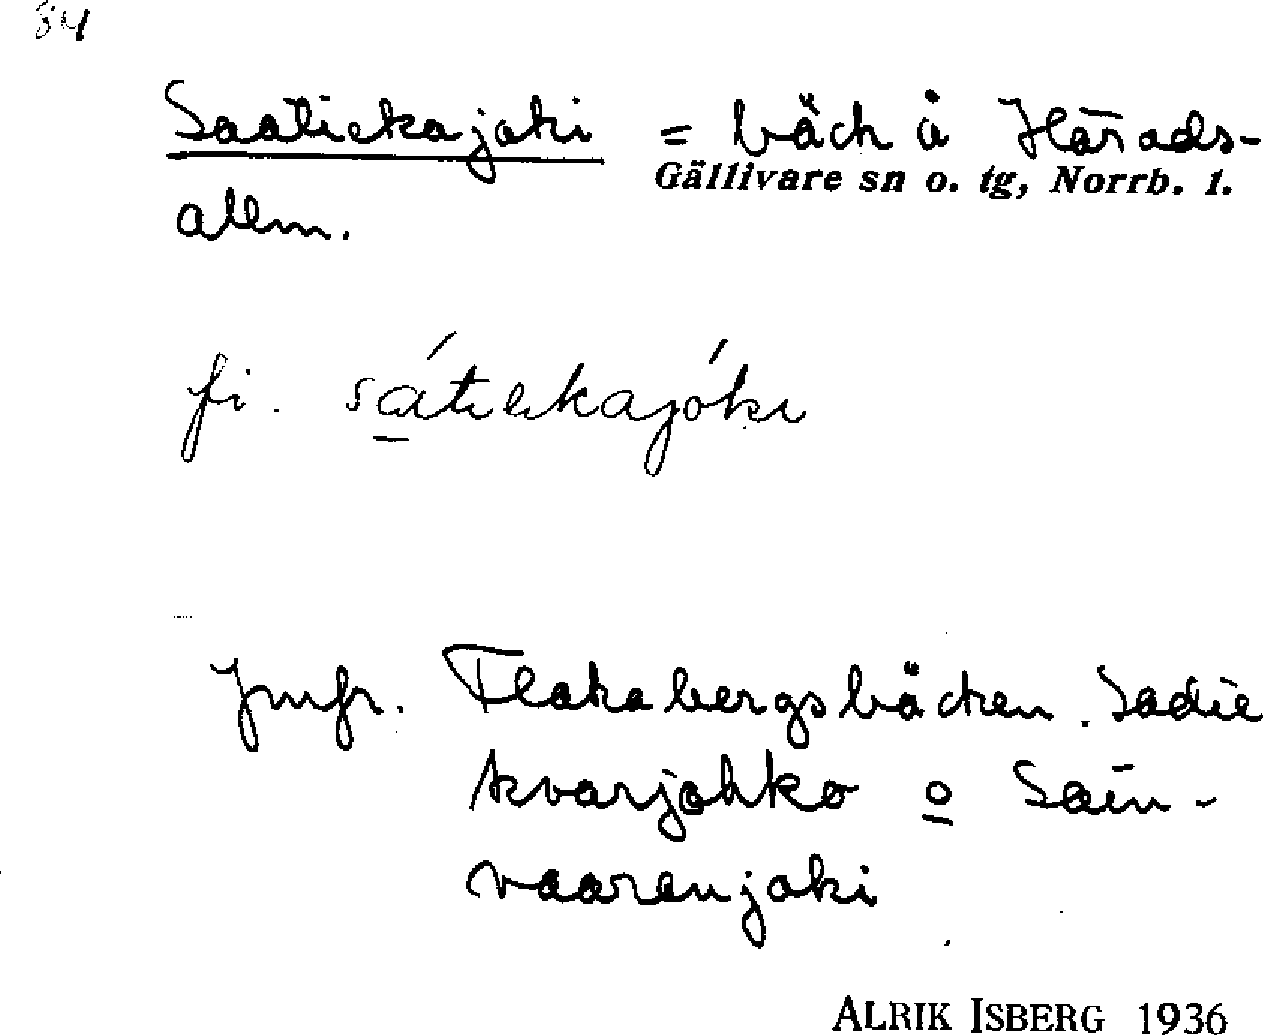 84
Saatickajoki = bäck å Härads-
Gällivare sn o. tg, Norrb. l.
allm.
fi.
Jmfr. Flakabergsbäcken. Sadie
kvarjohko o Sain-
vaarenjoki
ALRIK ISBERG 1936